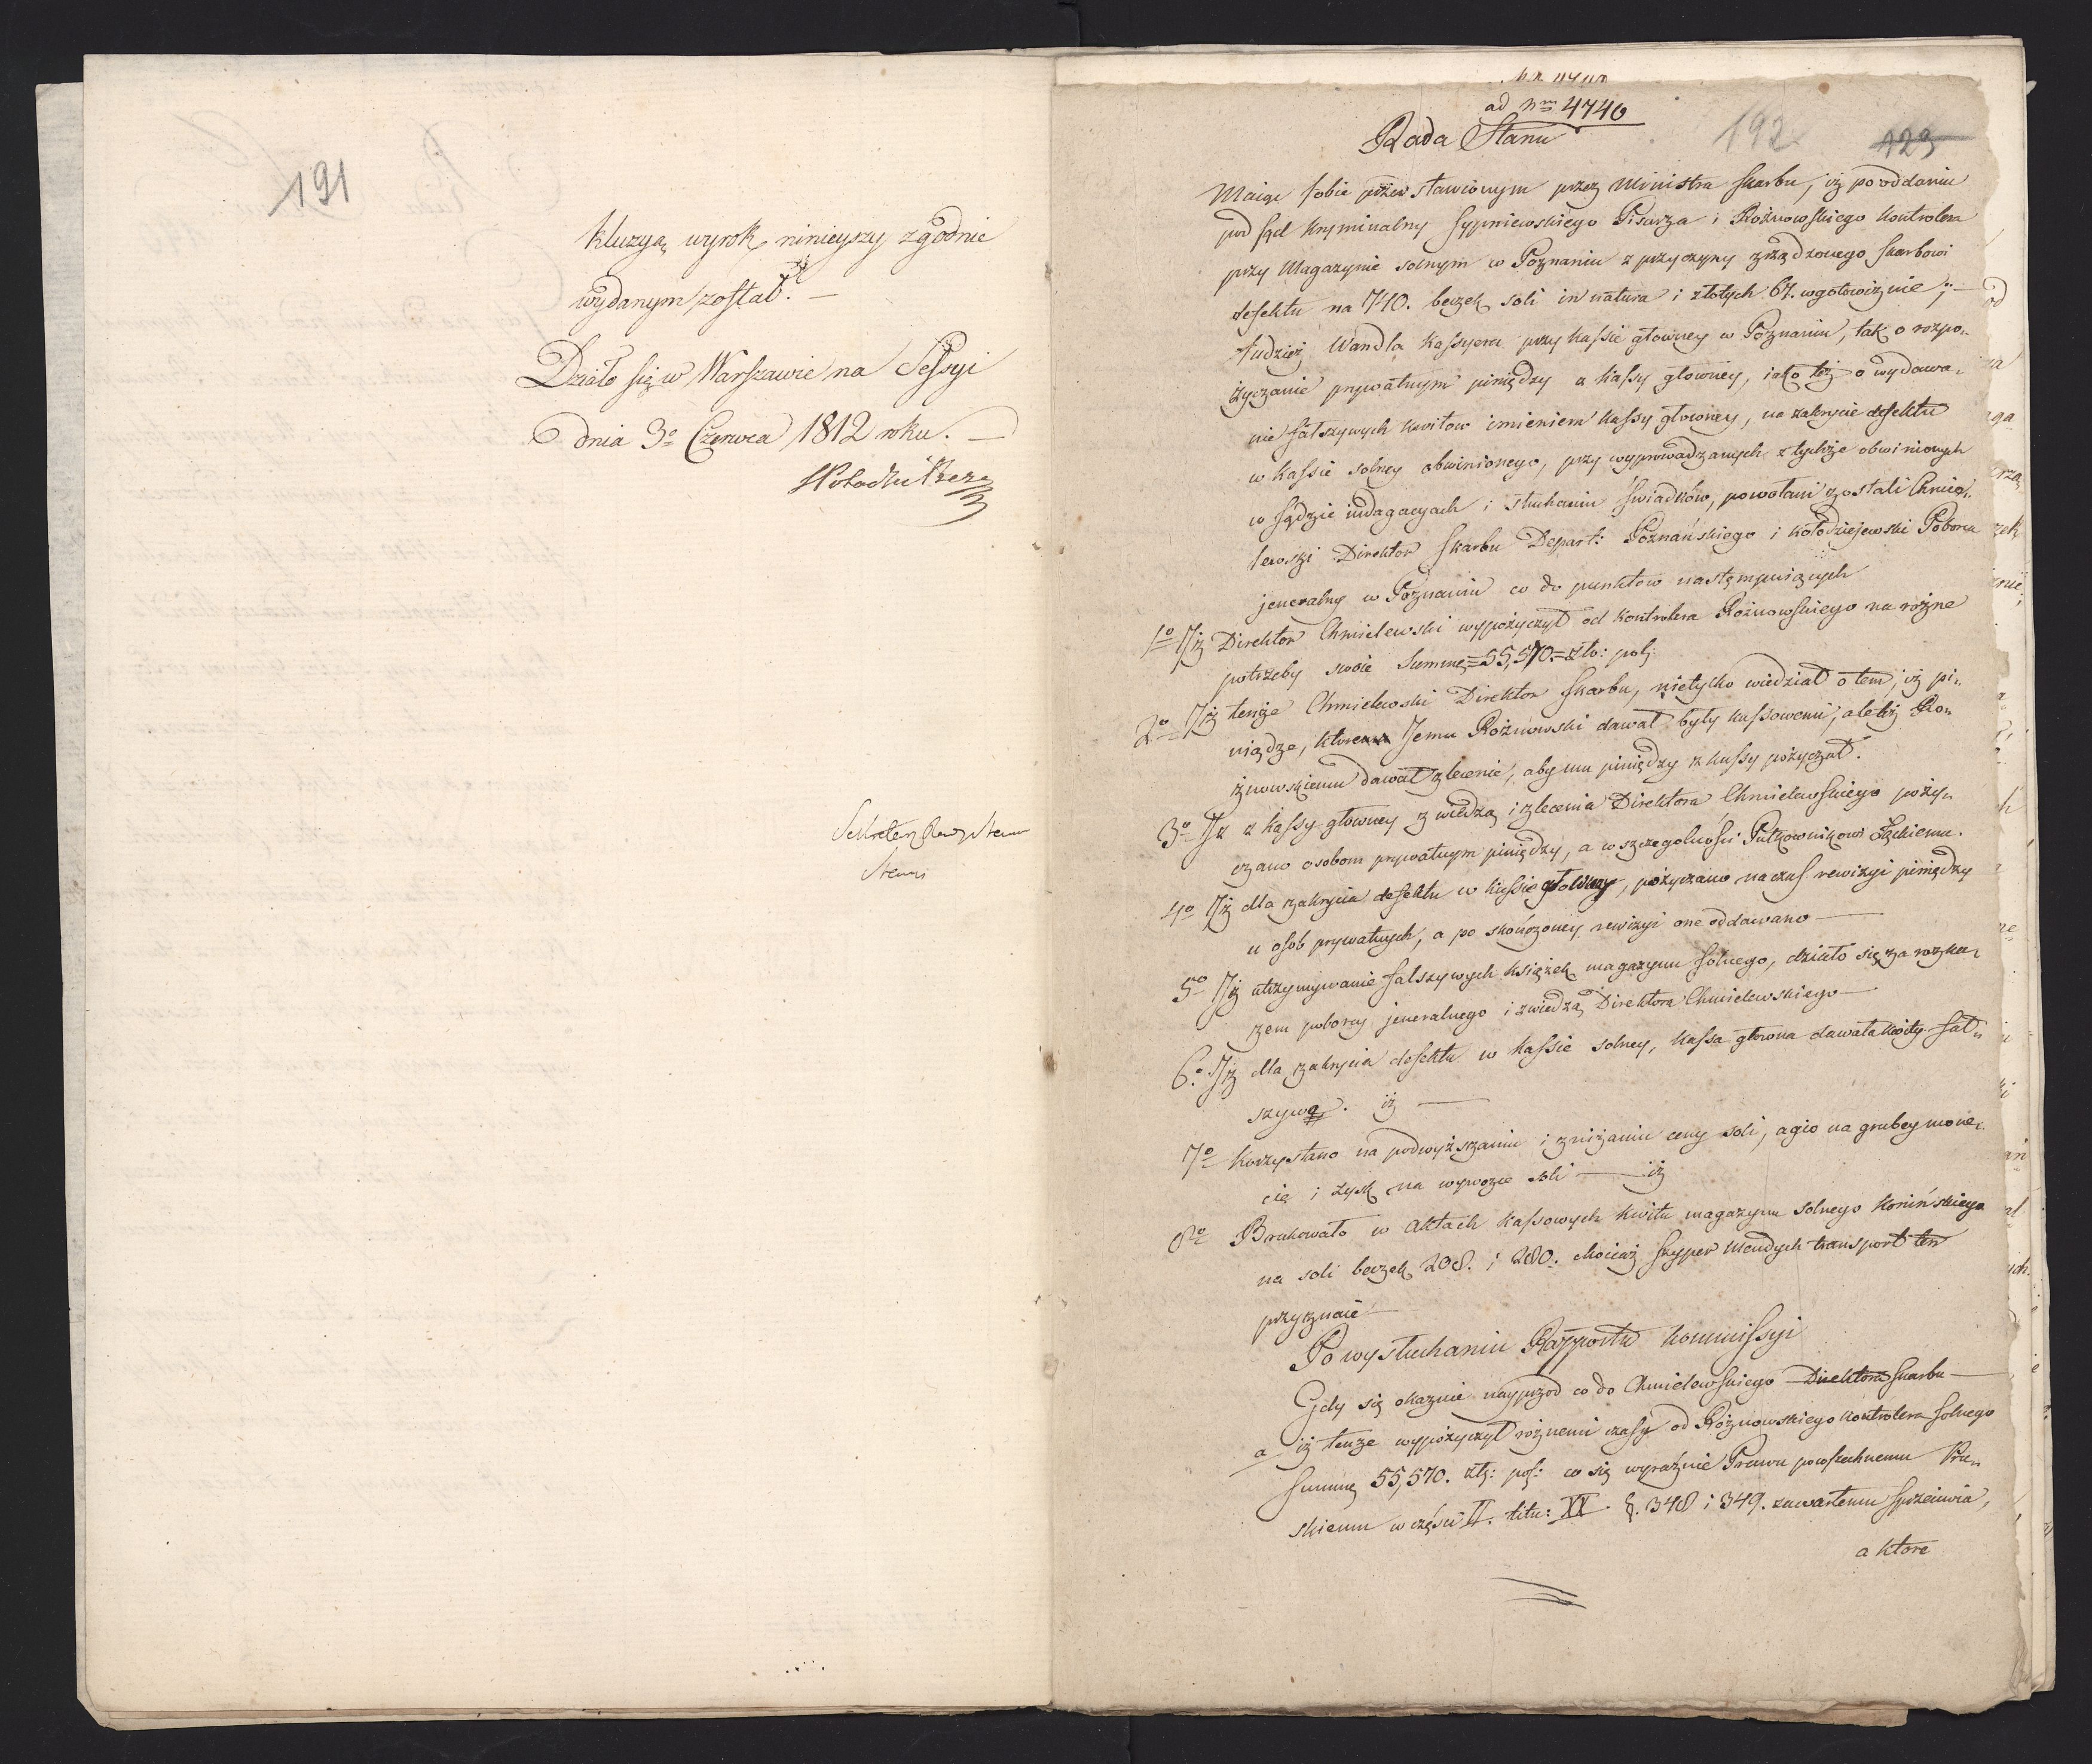 191
kluzyą wyrok ninieyszy zgodnie
wydanym został. —
Działo się w Warszawie na Sessyi
dnia 3º Czerwca 1812 roku. —
Sekretarz Rady Stanu
ad Nrm 4740
192
123
Rada Stanu
Maiąc sobie przedstawionym przez Ministra Skarbu, iż po oddaniu
pod sąd kryminalny Sypniewskiego Pisarza i Rożnowskiego Kontrolera
przy Magazynie solnym w Poznaniu z przyczyny zrządzonego Skarbowi
defektu na 740. beczek soli in natura i złotych 67. w gotowiznie; —
tudzież Wandla Kassyera przy kassie głowney w Poznaniu, tak o rozpo„
życzanie prywatnym pieniędzy z kassy głowney, iako też o wydawa„
nie fałszywych kwitow imieniem kassy głowney, na zakrycie defektu
w kassie solney obwinionego, przy wyprowadzanych z tychże obwinionych
w sądzie indagacyach i słuchaniu świadków, powołani zostali Chmie„
lewski Direktor Skarbu Depart: Poznańskiego i Kołodziejewski Poborca
jeneralny w Poznaniu co do punktow następuiących
1º Iż Direktor Chmielewski wypożyczył od Kontrolera Rożnowskiego na rożne
potrzeby swoie Summę = 55,570. = zło: pol:
2º Iż tenże Chmielewski Direktor Skarbu, nietylko wiedział o tem, iż pi„
niądze, ktore Jemu Rożnowski dawał były kassowemi, ale też Ro„
żnowskiemu dawał zlecenie, aby mu pieniędzy z kassy pożyczał.
3º Iż z kassy głowney z wiedzą i zlecenia Direktora Chmielewskiego poży„
czano osobom prywatnym pieniędzy, a w szczegolności Pułkownikowi Łąckiemu.
4º Iż dla zakrycia defektu w kassie głowney, pożyczano na czas rewizyi pieniędzy
u osob prywatnych, a po skończoney rewizyi one oddawano —
5º Iż utrzymywanie fałszywych książek magazynu solnego, działo się za rozka„
zem poborcy jeneralnego i z wiedzą Direktora Chmielewskiego —
6º Iż dla zakrycia defektu w kassie solney, kassa głowna dawała kwity fał„
szywe. iż —
7º Korzystano na podwyższaniu i zniżaniu ceny soli, agio na grubey mone„
cie i zysk na wywozie soli — iż
8º Brakowało w aktach kassowych kwitu magazynu solnego Konińskiego
na soli beczek 208. i 280. chociaż szyper Mendych transport ten
przyznaie —
Po wysłuchaniu Rapportu Kommissyi
Gdy się okazuie nayprzod co do Chmielewskiego Direktora Skarbu —
a iż tenże wypożyczył rożnemi czasy od Rożnowskiego Kontrolera solnego
Summę 55,570. zł: pol: co się wyraźnie Prawu powszechnemu Pru„
skiemu w części II. titu: XX. §. 348 i 349. zawartemu sprzeciwia,
a ktore